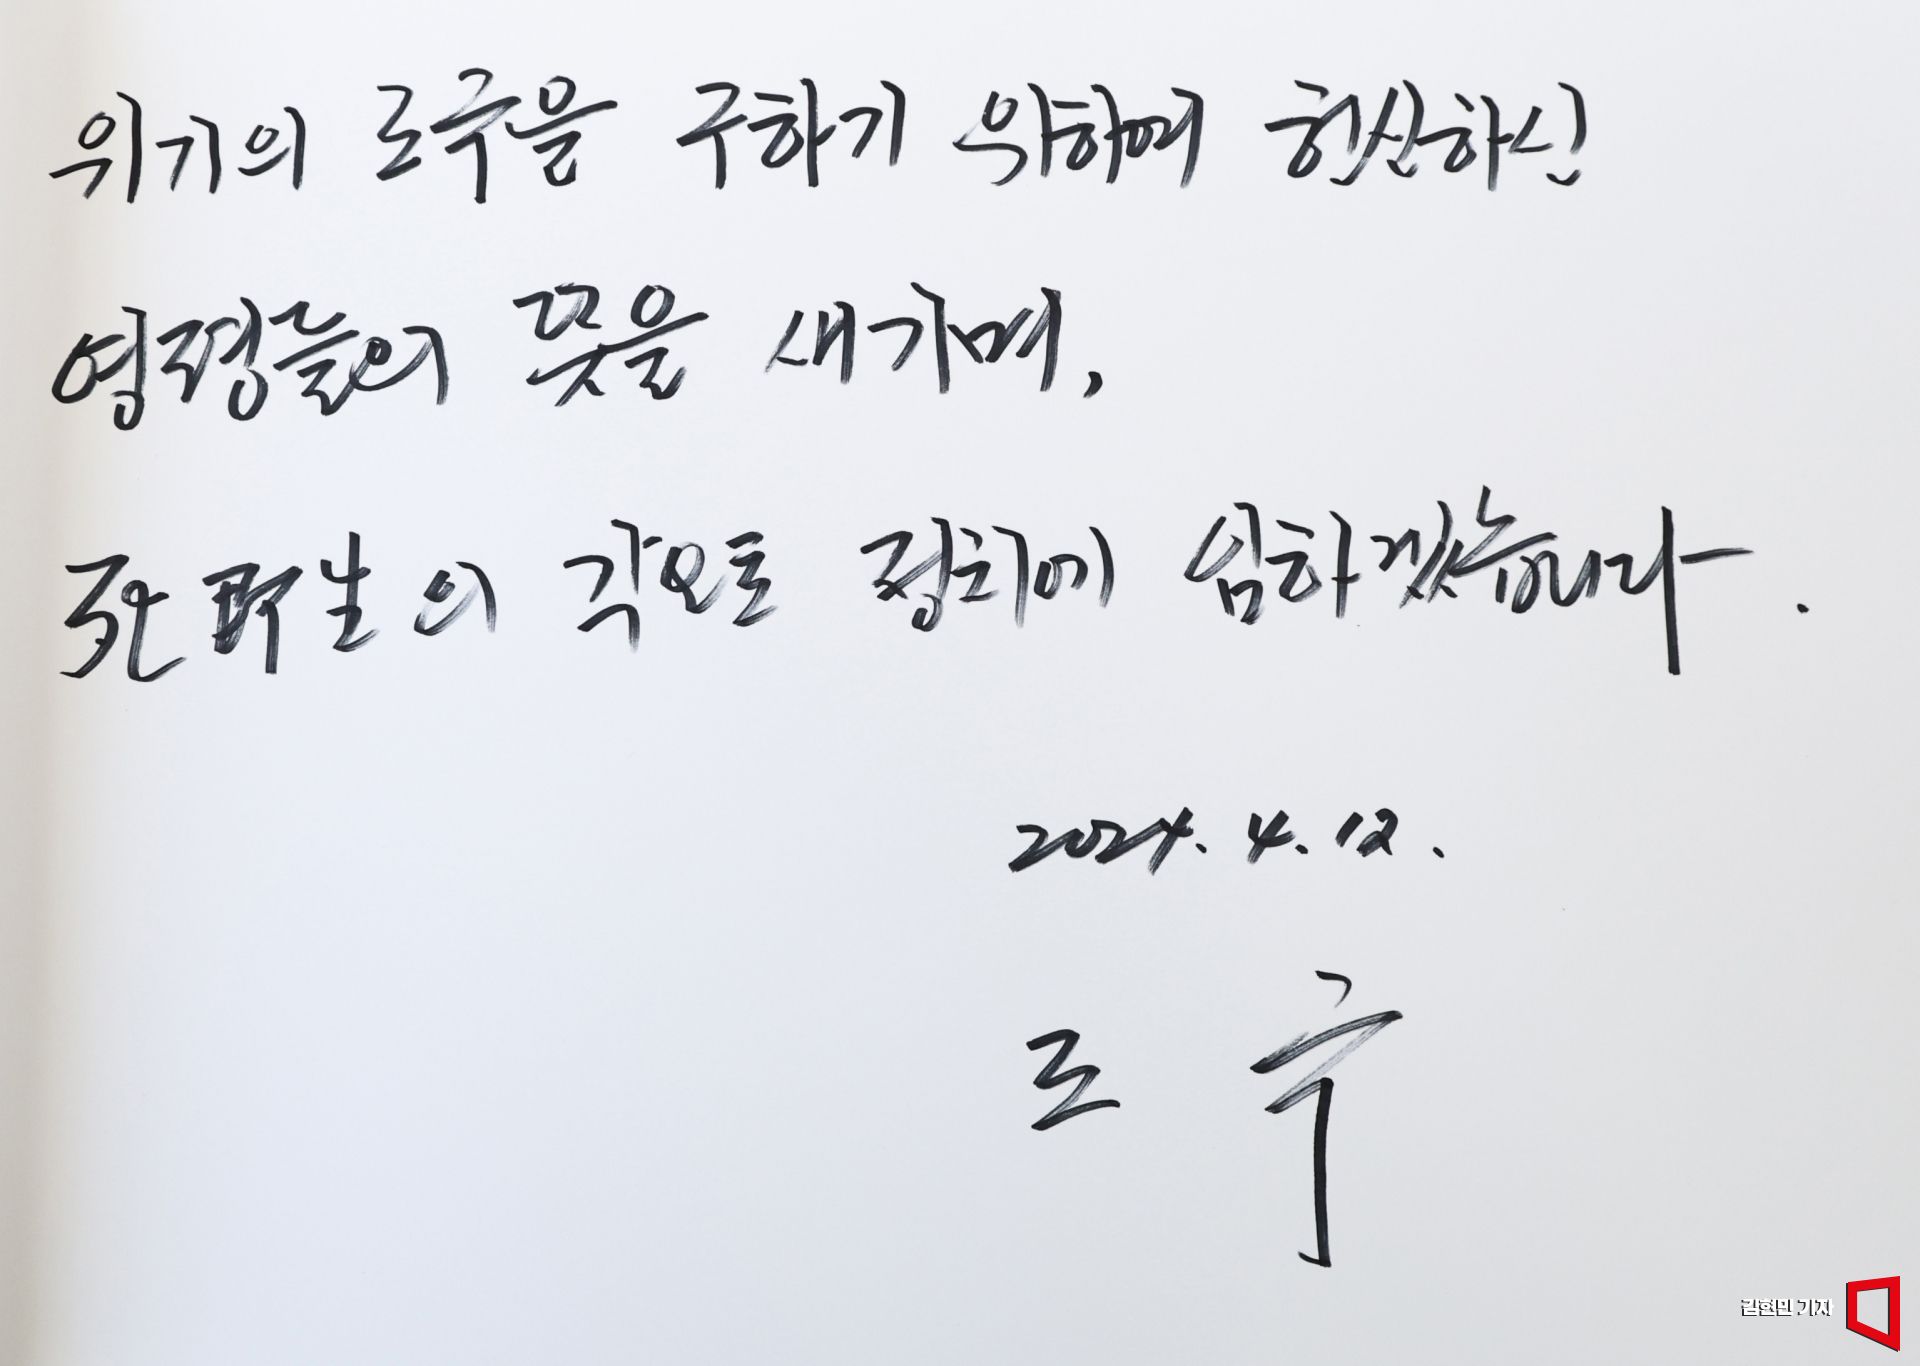 위기의 조국을 구하기 위하여 헌신하신
영령들의 뜻을 새기며,
死即生의 각오로 정치에 임하겠습니다.
2024. 4. 12.
조 국
김현민 기자